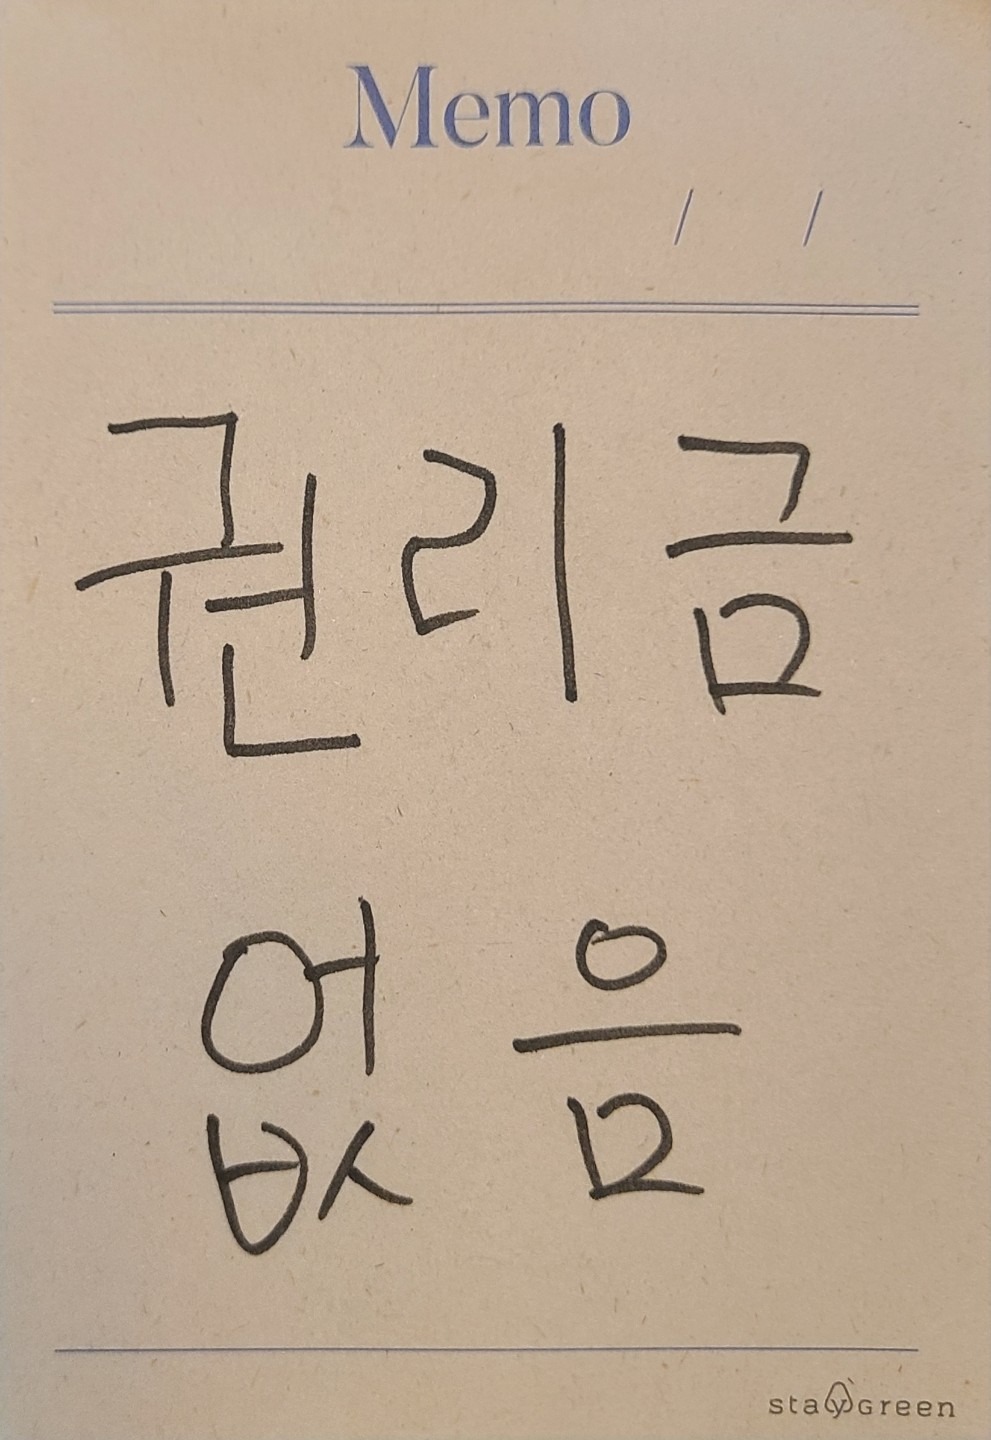 Memo
/ /
권리금
없음
stayGreen